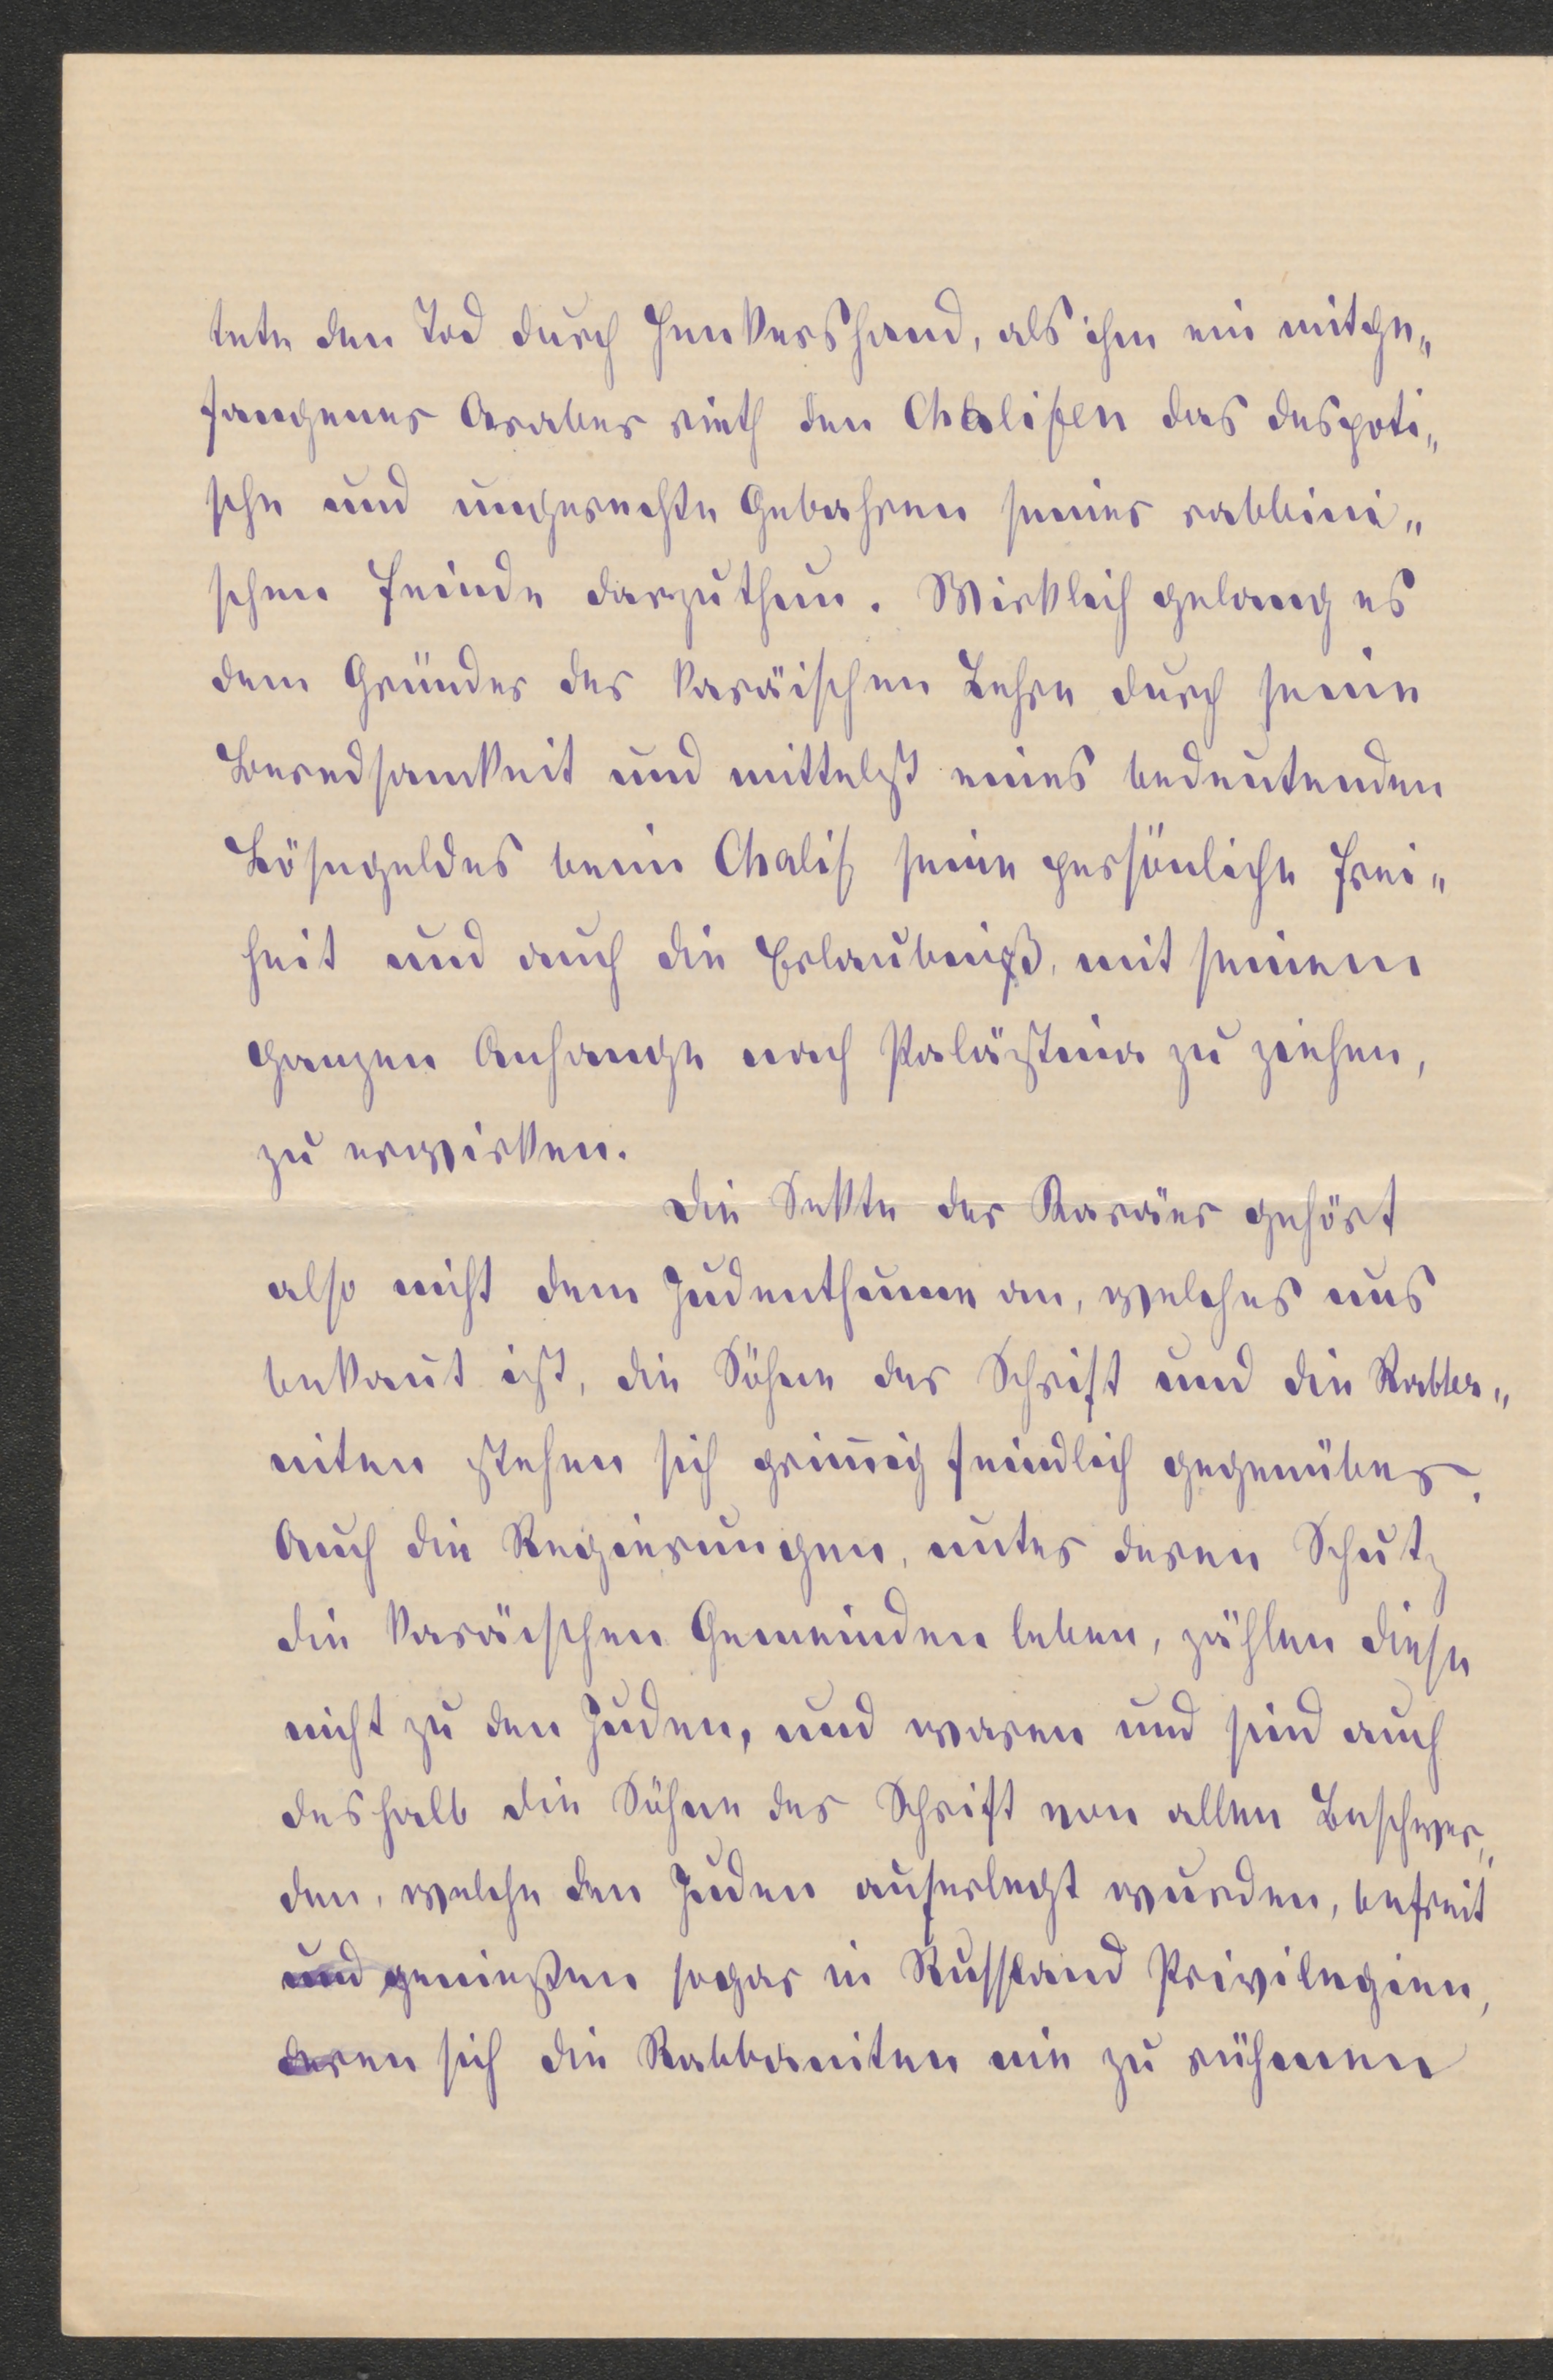 tete den Tod durch Henkershand, als ihm ein mitge„
fangener Araber rieth den Chalifen das despoti„
sche und ungerechte Gebahren seiner rabbini„
schen Feinde darzuthun. Wirklich gelang es
dem Gründer der karäischen Lehre durch seine
Beredsamkeit und mittelst eines bedeutenden
Lösegeldes beim Chalif seine persönliche Frei„
heit und auch die Erlaubniß, mit seinem
ganzen Anhange nach Palästina zu ziehen,
zu erwirken.
Die Sekte der Karäer gehört
also nicht dem Judenthume an, welches uns
bekannt ist, die Söhne der Schrift und die Rabba„
niten stehen sich grim̄ig feindlich gegenüber.
Auch die Regierungen, unter deren Schutz
die karäischen Gemeinden leben, zählen diese
nicht zu den Juden, und waren und sind auch
deshalb die Söhne der Schrift von allen Beschwer„
den, welche den Juden auferlegt wurden, befreit
und genießen sogar in Russland Privilegien,
deren sich die Rabbaniten nie zu rühmen